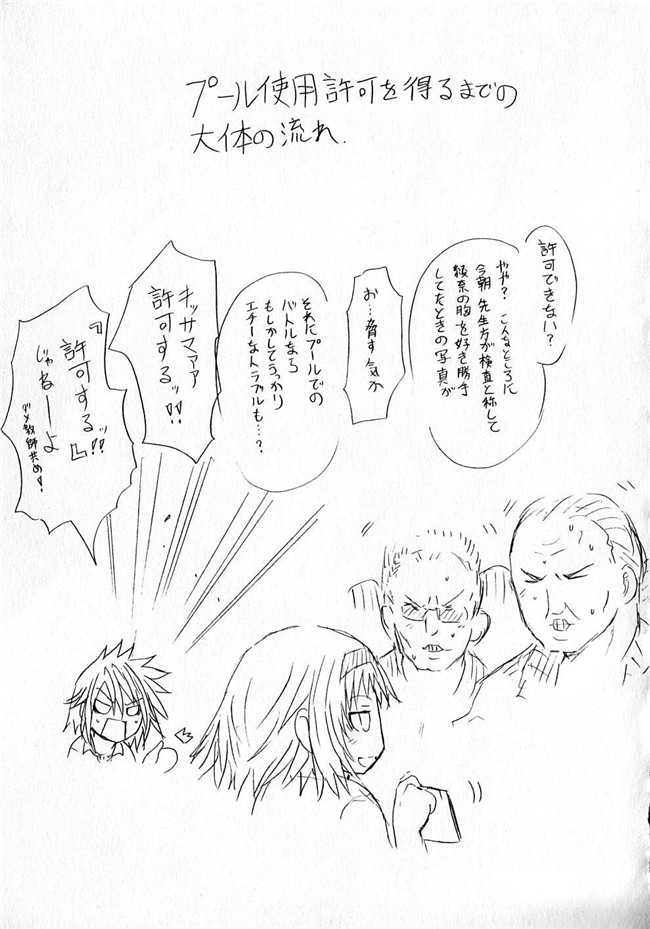 プール使用許可を得るまでの
大体の流れ.
許可できない?
やや? こんなところに
今朝 先生方が検査と称して
綾奈の胸を好き勝手
してたときの写真が
お…脅す気か
それにプールでの
バトルなら
もしかしてうっかり
エチーなトラブルも…?
キッサマァァ
許可するッ!!
『許可するッ!!』
じゃねーよ
ダメ教師共め!